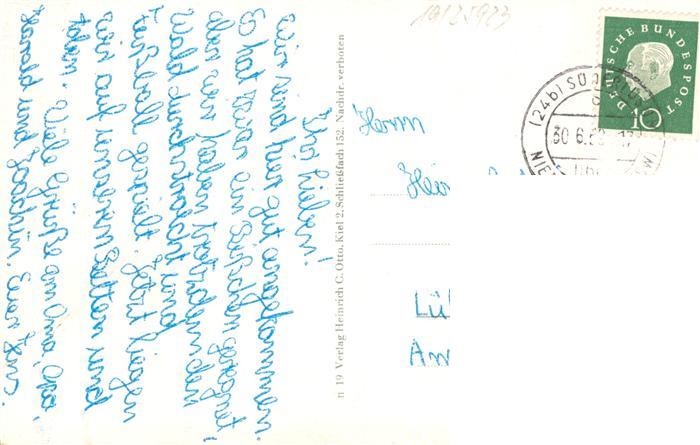 Ihr Lieben!
wir sind hier gut angekommen.
Es hat zwar ein bißchen geregnet,
aber wir haben trotzdem den
Wald und
Fußball gespielt. Jetzt liegen
wir auf unseren Betten und
toben. Viele Grüße an Oma, Opa,
Harald und Joachim. Euer Jens.
n 19 Verlag Heinrich C. Otto, Kiel 2, Schließfach 152. Nachdr. verboten
10125923
DEUTSCHE BUNDESPOST
10
(24b) SÜD
30.6.60.-17
Herrn
Hein
Lü
Am